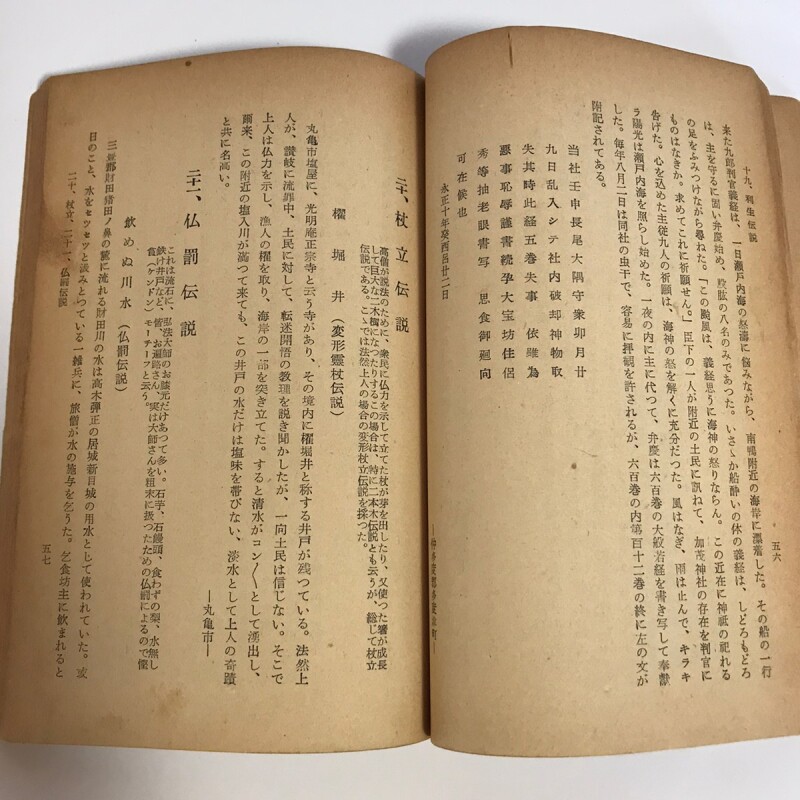 十九、利生伝説
五六
来た九郎判官義経は、一日瀬戸内海の怒濤に悩みながら、南鴨附近の海岸に漂着した。その船の一行
は、主を守るに固い弁慶始め、股肱の八名のみであつた。いさゝか船酔いの休の義経は、しどろもどろ
の足をふみつけながら尋ねた。「この颱風は、義経思うに海神の怒りならん。この近在に神祗の祀れる
ものはなきか。求めてこれに祈願せん。」臣下の一人が附近の土民に訊ねて、加茂神社の存在を判官に
告げた。心を込めた主従九人の祈願は、海神の怒を解くに充分だつた。風はなぎ、雨は止んで、キラキ
ラ陽光は瀬戸内海を照らし始めた。一夜の内に主に代つて、弁慶は六百巻の大般若経を書き写して奉献
した。毎年八月二日は同社の虫干で、容易に拝観を許されるが、六百巻の内第百十二巻の終に左の文が
附記されてある。
当社壬申長尾大隅守衆卯月廿
九日乱入シテ社内破却神物取
失其時此経五巻失事 依雖為
悪事恥辱謹書続孕大宝坊住侶
秀等抽老眼書写 思食御廻向
可在候也
永正十年癸酉呂廿二日
二十、杖立伝説
高僧が説法のために、衆民に仏力を示して立てた杖が芽を出したり、又使つた箸が成長
して巨大な二木樹になつたりするこの場合は、特に二本木伝説とも云うが、総じて杖立
伝説である。こゝでは法然上人の場合の変形杖立伝説を採つた。
櫂堀井(変形霊杖伝説)
丸亀市塩屋に、光明庵正宗寺と云う寺があり、その境内に櫂堀井と称する井戸が残つている。法然上
人が、讃岐に流罪中、土民に対して、転迷開悟の教理を説き聞かしたが、一向土民は信じない。そこで
上人は仏力を示し、漁人の櫂を取り、海岸の一部を突き立てた。すると清水がコン〳〵として湧出し、
爾来、この附近の塩入川が満つて来ても、この井戸の水だけは塩味を帯びない、淡水として上人の奇蹟
と共に名高い。
―丸亀市―
二十一、仏罰伝説
これは流石に、弘法大師のお膝元だけあつて多い。石芋、石饅頭、食わずの梨、水無し
鉄け井戸など、皆、お遍路さん、実は大師さんを粗末に扱つたための仏罰によるので慳
貪(ケンドン)モーチーフと云う。
飲めぬ川水(仏罰伝説)
三豊郡財田猪田ノ鼻の麓に流れる財田川の水は高木弾正の居城新目城の用水として使われていた。或
日のこと、水をセツセツと汲みとつている一雑兵に、旅僧が水の施与を乞うた。乞食坊主に飲まれると
二十、杖立、二十一、仏罰伝説
五七